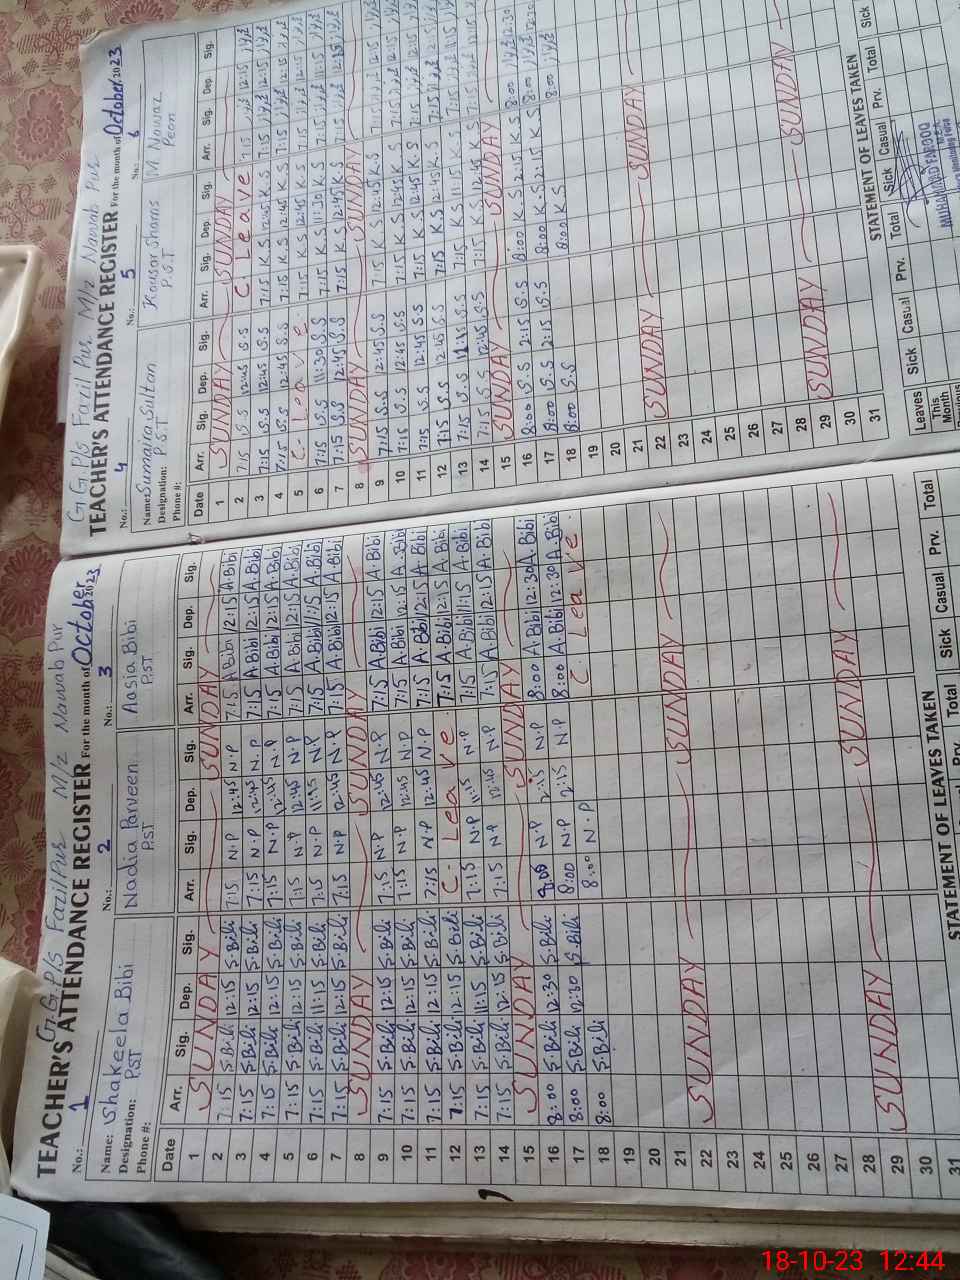 G.G.P/S Fazil Pur M/z Nawab Pur
TEACHER'S ATTENDANCE REGISTER For the month of October 2023
No.: 1 2 No.: 3
Name: Shakeela Bibi Nadia Parveen Aasia Bibi
Designation: PST PST PST
Phone #:
Date Arr. Sig. Dep. Sig. Arr. Sig. Dep. Sig. Arr. Sig. Dep. Sig.
1 SUNDAY SUNDAY
2 7:15 S.Bibi 12:15 S.Bibi 7:15 N.P 12:45 N.P 7:15 A.Bibi 12:15 A.Bibi
3 7:15 S.Bibi 12:15 S.Bibi 7:15 N.P 12:45 N.P 7:15 A.Bibi 12:15 A.Bibi
4 7:15 S.Bibi 12:15 S.Bibi 7:15 N.P 12:45 N.P 7:15 A.Bibi 12:15 A.Bibi
5 7:15 S.Bibi 12:15 S.Bibi 7:15 N.P 12:45 N.P 7:15 A.Bibi 12:15 A.Bibi
6 7:15 S.Bibi 11:15 S.Bibi 7:15 N.P N.P 7:15 A.Bibi 11:15 A.Bibi
7 7:15 S.Bibi 12:15 S.Bibi 7:15 N.P 12:45 N.P 7:15 A.Bibi 12:15 A.Bibi
8 SUNDAY SUNDAY
9 7:15 S.Bibi 12:15 S.Bibi 7:15 N.P 12:45 N.P 7:15 A.Bibi 12:15 A.Bibi
10 7:15 S.Bibi 12:15 S.Bibi 7:15 N.P 12:45 N.P 7:15 A.Bibi 12:15 A.Bibi
11 7:15 S.Bibi 12:15 S.Bibi 7:15 N.P 12:45 N.P 7:15 A.Bibi 12:15 A.Bibi
12 7:15 S.Bibi 12:15 S.Bibi C- Leave. 7:15 A.Bibi 12:15 A.Bibi
13 7:15 S.Bibi 11:15 S.Bibi 7:15 N.P 11:15 N.P 7:15 A.Bibi 11:15 A.Bibi
14 7:15 S.Bibi 12:15 S.Bibi 7:15 N.P 12:45 N.P 7:15 A.Bibi 12:15 A.Bibi
15 SUNDAY SUNDAY
16 8:00 S.Bibi 12:30 S.Bibi 8:00 N.P 2:15 N.P 8:00 A.Bibi 12:30 A.Bibi
17 8:00 S.Bibi 12:30 S.Bibi 8:00 N.P 2:15 N.P 8:00 A.Bibi 12:30 A.Bibi
18 8:00 S.Bibi 8:00 N.P C. Leave.
19
20
21
22 SUNDAY SUNDAY
23
24
25
26
27
28
29 SUNDAY SUNDAY
30
31
STATEMENT OF LEAVES TAKEN
Total Prv. Sick Casual Prv. Total
G.G.P/S Fazil Pur M/z Nawab Pur
TEACHER'S ATTENDANCE REGISTER For the month of October 2023
No.: 4 No.: 5 No.: 6
Name: Sumaira Sultan Kousor Shams M. Nawaz
Designation: P.S.T P.S.T Peon
Phone #:
Date Arr. Sig. Dep. Sig. Arr. Sig. Dep. Sig. Arr. Sig. Dep. Sig.
1 SUNDAY SUNDAY
2 7:15 S.S 12:45 S.S C Leave 7:15 12:15
3 7:15 S.S 12:45 S.S 7:15 K.S 12:45 K.S 7:15 12:15
4 7:15 S.S 12:45 S.S 7:15 K.S 12:45 K.S 7:15 12:15
5 C- Leave. 7:15 K.S 12:45 K.S 7:15 12:15
6 7:15 S.S 11:30 S.S 7:15 K.S 11:30 K.S 7:15 11:15
7 7:15 S.S 12:45 S.S 7:15 K.S 12:45 K.S 7:15 12:15
8 SUNDAY SUNDAY
9 7:15 S.S 12:45 S.S 7:15 K.S 12:45 K.S 7:15 12:15
10 7:15 S.S 12:45 S.S 7:15 K.S 12:45 K.S 7:15 12:15
11 7:15 S.S 12:45 S.S 7:15 K.S 12:45 K.S 7:15 12:15
12 7:15 S.S 12:45 S.S 7:15 K.S 12:45 K.S 7:15
13 7:15 S.S S.S 7:15 K.S 11:15 K.S 7:15 11:15
14 7:15 S.S 12:45 S.S 7:15 K.S 12:45 K.S 7:15 12:15
15 SUNDAY SUNDAY
16 8:00 S.S 2:15 S.S 8:00 K.S 2:15 K.S 8:00 12:30
17 8:00 S.S 2:15 S.S 8:00 K.S 2:15 K.S 8:00 12:30
18 8:00 S.S 8:00 K.S 8:00
19
20
21
22 SUNDAY SUNDAY
23
24
25
26
27
28
29 SUNDAY SUNDAY
30
31
STATEMENT OF LEAVES TAKEN
Leaves Sick Casual Prv. Total Sick Casual Prv. Total Sick
This Month
MUHAMMAD FAROOQ
M.E.A
18-10-23 12:44